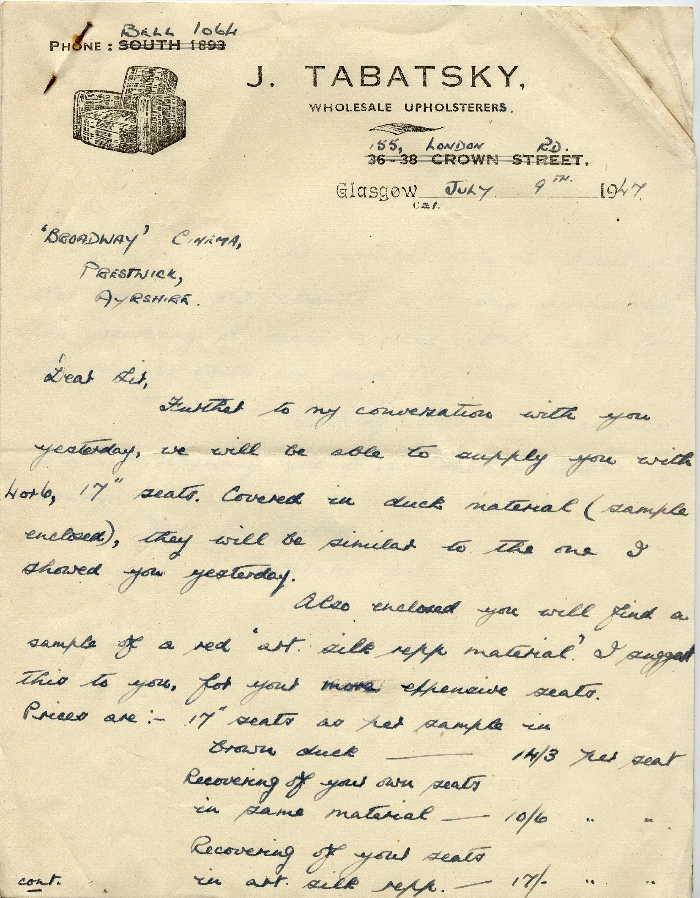 BELL 1064
PHONE : SOUTH 1893
J. TABATSKY,
WHOLESALE UPHOLSTERERS.
155, LONDON RD.
36-38 CROWN STREET.
Glasgow JULY 9TH 1947.
C.21.
'BROADWAY' CINEMA,
PRESTWICK,
AYRSHIRE.
Dear Sir,
Further to my conversation with you
yesterday, we will be able to supply you with
17" seats. Covered in duck material (sample
enclosed), they will be similar to the one I
showed you yesterday.
Also enclosed you will find a
sample of a red "art. silk repp material". I suggest
this to you, for your more expensive seats.
Prices are :- 17" seats as per sample in
brown duck —— 14/3 per seat
Recovering of your own seats
in same material — 10/6 " "
Recovering of your seats
cont. in art. silk repp. — 17/- " "